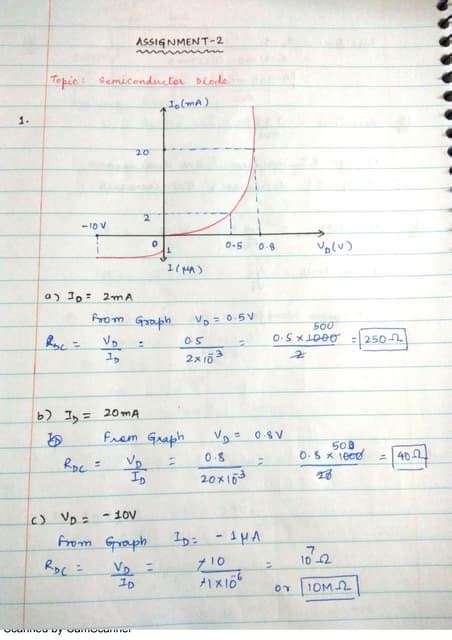 ASSIGNMENT-2
Topic: Semiconductor Diode
1.
I_D(mA)
20
2
-10V
0
0.5 0.8
V_D(V)
1
I(μA)
a) I_D = 2mA
From Graph V_D = 0.5V
R_DC = V_D/I_D = 0.5/2×10^-3 = 0.5×1000/2 500 = 250Ω
b) I_D = 20mA
From Graph V_D = 0.8V
R_DC = V_D/I_D = 0.8/20×10^-3 = 0.8×1000/20 = 40Ω
c) V_D = -10V
From Graph I_D = -1μA
R_DC = V_D/I_D = -10/-1×10^-6 = 10^7Ω
or 10MΩ
Scanned by CamScanner